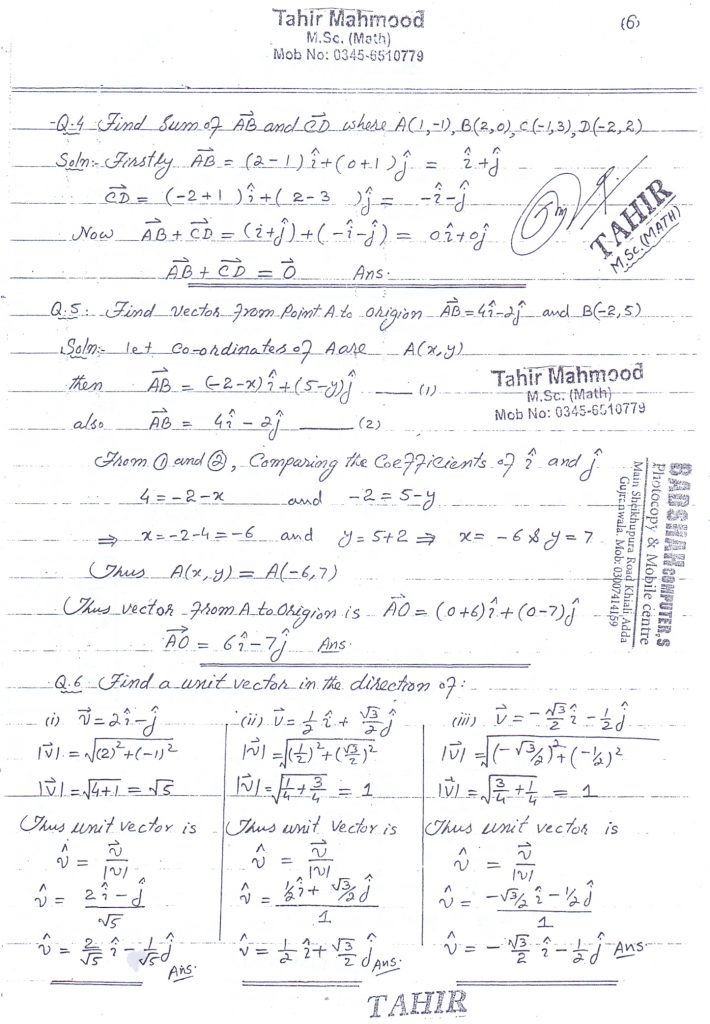 Tahir Mahmood
M.Sc. (Math)
Mob No: 0345-6510779
(6)
Q.4 Find Sum of \vec{AB} and \vec{CD} where A(1,-1), B(2,0), C(-1,3), D(-2,2)
Soln:- Firstly \vec{AB} = (2-1)î+(0+1)ĵ = î+ĵ
\vec{CD} = (-2+1)î+(2-3)ĵ = -î-ĵ
Now \vec{AB}+\vec{CD} = (î+ĵ)+(-î-ĵ) = 0î+0ĵ
\vec{AB}+\vec{CD} = \vec{0} Ans.
TAHIR
M.Sc.(MATH)
Q.5: Find vector from Point A to origion \vec{AB}=4î-2ĵ and B(-2,5)
Soln:- let Co-ordinates of A are A(x,y)
then \vec{AB} = (-2-x)î+(5-y)ĵ —— (1)
also \vec{AB} = 4î-2ĵ —— (2)
Tahir Mahmood
M.Sc. (Math)
Mob No: 0345-6510779
From ① and ②, Comparing the Coefficients of î and ĵ
4=-2-x and -2=5-y
⇒ x=-2-4=-6 and y=5+2 ⇒ x=-6 & y=7
Thus A(x,y) = A(-6,7)
Thus vector from A to Origion is \vec{AO} = (0+6)î+(0-7)ĵ
\vec{AO} = 6î-7ĵ Ans.
BADSHAH COMPUTER,S
Photocopy & Mobile centre
Main Sheikhupura Road Khali Adda
Gujranwala. Mob: 03007414159
Q.6 Find a unit vector in the direction of:
(i) \vec{v}=2î-ĵ
|\vec{v}|=√((2)²+(-1)²
|\vec{v}|=√(4+1) = √5
Thus unit vector is
v̂ = \vec{v}/|v|
v̂ = (2î-ĵ)/√5
v̂ = 2/√5 î - 1/√5 ĵ Ans.
(ii) \vec{v}=1/2 î + √3/2 ĵ
|\vec{v}|=√((1/2)²+(√3/2)²
|\vec{v}|=√(1/4+3/4) = 1
Thus unit vector is
v̂ = \vec{v}/|v|
v̂ = (1/2 î + √3/2 ĵ)/1
v̂ = 1/2 î + √3/2 ĵ Ans.
(iii) \vec{v}=-√3/2 î - 1/2 ĵ
|\vec{v}|=√((-√3/2)²+(-1/2)²
|\vec{v}|=√(3/4+1/4) = 1
Thus unit vector is
v̂ = \vec{v}/|v|
v̂ = (-√3/2 î - 1/2 ĵ)/1
v̂ = -√3/2 î - 1/2 ĵ Ans.
TAHIR